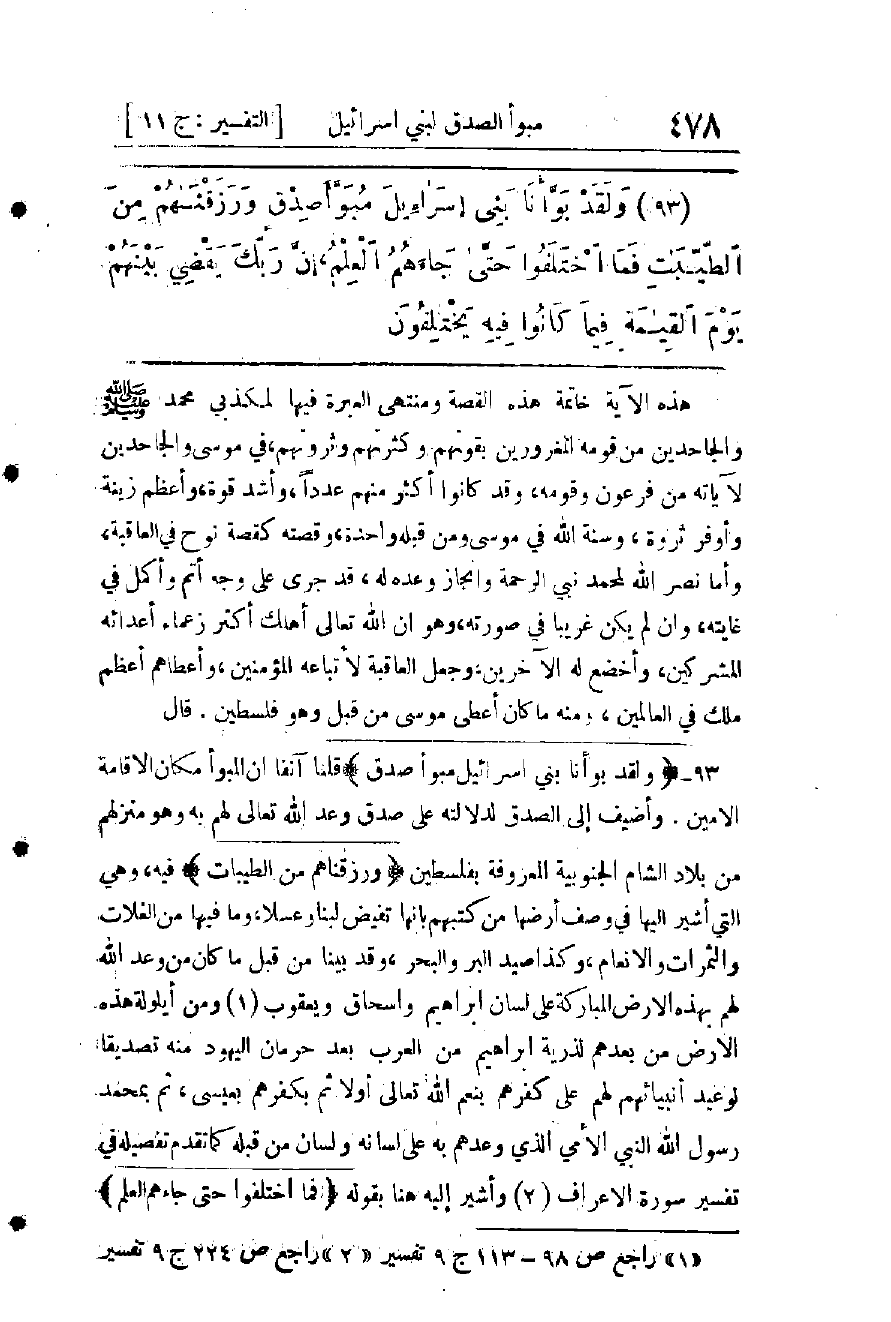 ٤٧٨ مبوأ الصدق لبني اسرائيل [التفسير : ج ١١]
(٩٣) وَلَقَدْ بَوَّأْنَا بَنِي إِسْرَاءِيلَ مُبَوَّأَ صِدْقٍ وَرَزَقْنَـٰهُمْ مِنَ
ٱلطَّيِّبَـٰتِ فَمَا ٱخْتَلَفُوا حَتَّىٰ جَاءَهُمُ ٱلْعِلْمُ، إِنَّ رَبَّكَ يَقْضِي بَيْنَهُمْ
يَوْمَ ٱلْقِيـٰمَةِ فِيمَا كَانُوا فِيهِ يَخْتَلِفُونَ
هذه الآية خاتمة هذه القصة ومنتهى العبرة فيها لمكذبي محمد ﷺ
والجاحدين من قومه المغرورين بقوتهم وكثرتهم وثروتهم، في موسى والجاحدين
لآياته من فرعون وقومه، وقد كانوا أكثر منهم عدداً، وأشد قوة، وأعظم زينة
وأوفر ثروة، وسنة الله في موسى ومن قبله واحدة، وقصته كقصة نوح في العاقبة،
وأما نصر الله لمحمد نبي الرحمة وانجاز وعده له، قد جرى على وجه أتم وأكمل في
غايته، وان لم يكن غريبا في صورته، وهو ان الله تعالى أهلك أكثر زعماء أعدائه
المشركين، وأخضع له الآخرين، وجعل العاقبة لأتباعه المؤمنين، وأعطاهم أعظم
ملك في العالمين، ومنه ما كان أعطى موسى من قبل وهو فلسطين . قال
٩٣ـ ﴿ ولقد بوأنا بني اسرائيل مبوأ صدق ﴾ قلنا آنفا ان المبوأ مكان الاقامة
الامين . وأضيف إلى الصدق لدلالته على صدق وعد الله تعالى لهم به وهو منزلهم
من بلاد الشام الجنوبية المعروفة بفلسطين ﴿ ورزقناهم من الطيبات ﴾ فيه، وهي
التي أشير اليها في وصف أرضها من كتبهم بانها تفيض لبنا وعسلا، وما فيها من الغلات
والثمرات والانعام، وكذا صيد البر والبحر، وقد بينا من قبل ما كان من وعد الله
لهم بهذه الارض المباركة على لسان ابراهيم واسحاق ويعقوب (١) ومن أيلولة هذه
الارض من بعدهم لذرية ابراهيم من العرب بعد حرمان اليهود منه تصديقا
لوعيد أنبيائهم لهم على كفرهم بنعم الله تعالى أولا ثم بكفرهم بعيسى، ثم بمحمد
رسول الله النبي الأمي الذي وعدهم به على لسانه ولسان من قبله كما تقدم تفصيله في
تفسير سورة الاعراف (٢) وأشير إليه هنا بقوله ﴿ فما اختلفوا حتى جاءهم العلم ﴾
«١» راجع ص ٩٨ – ١١٣ ج ٩ تفسير « ٢ » راجع ص ٢٢٤ ج ٩ تفسير